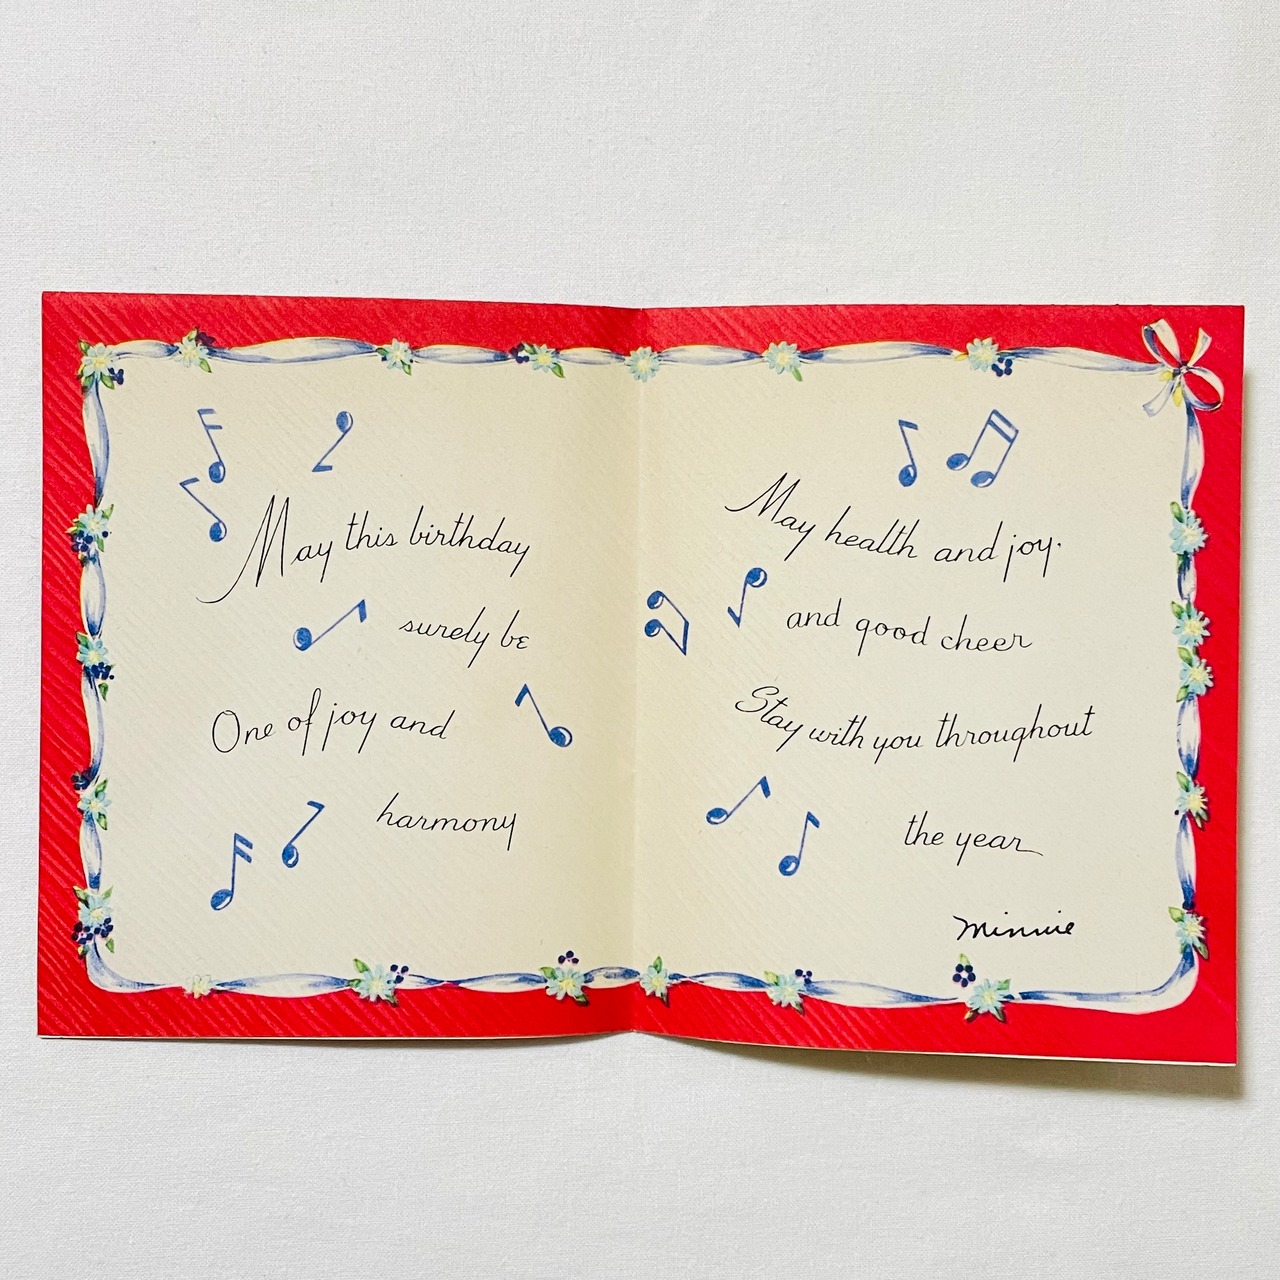 May this birthday
surely be
One of joy and
harmony
May health and joy.
and good cheer
Stay with you throughout
the year
Minnie